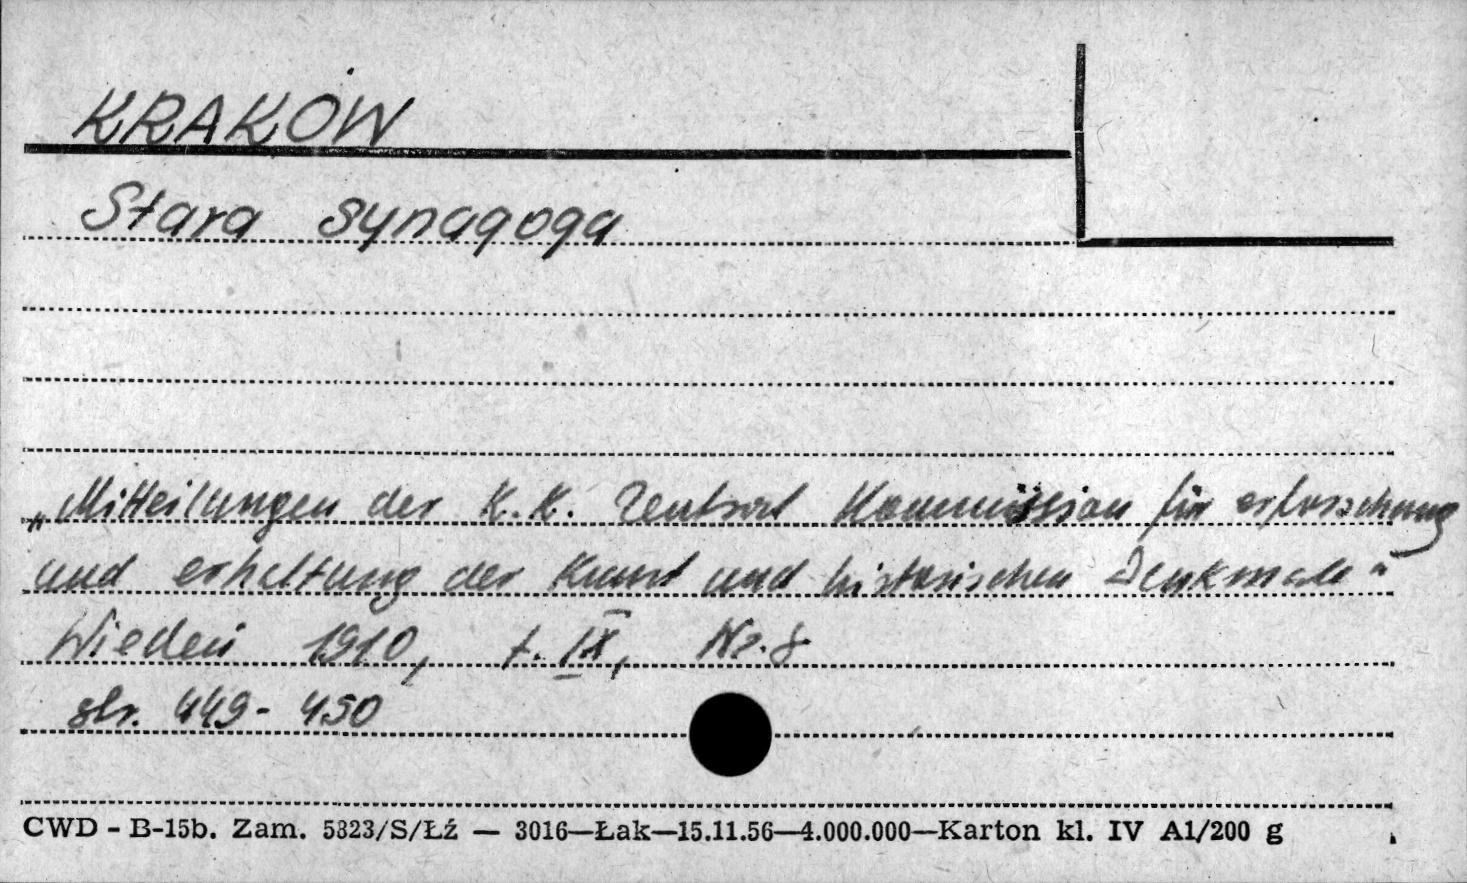 KRAKÓW
Stara synagoga
„Mitteilungen der K.K. Zentral Kommission für erforschung
und erhaltung der Kunst und historischen Denkmale"
Wiedeń 1910, t. IX, Nr. 8
str. 449-450
CWD - B-15b. Zam. 5323/S/Łź — 3016—Łak—15.11.56—4.000.000—Karton kl. IV A1/200 g